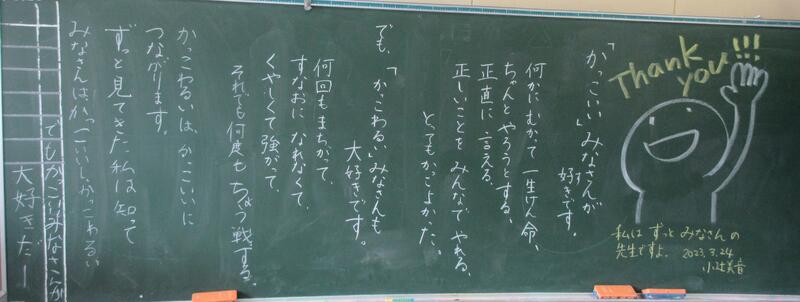 Thank
you!!!
「かっこいい」みなさんが
好きです。
何かにむかって一生けん命、
ちゃんとやろうとする、
正直に言える、
正しいことをみんなでやれる、
とてもかっこよかった。
でも、「かっこわるい」みなさんも
大好きです。
何回もまちがって、
すなおになれなくて、
くやしくて強がって、
それでも何度もちょう戦する。
かっこわるいは、かっこいいに
つながります。
ずっと見てきた私は知って
みなさんはかっこいいし、かっこわるい
でもかっこいいみなさんが
大好きだー
私はずっとみなさんの
先生ですよ。 2023.3.24
小辻美音